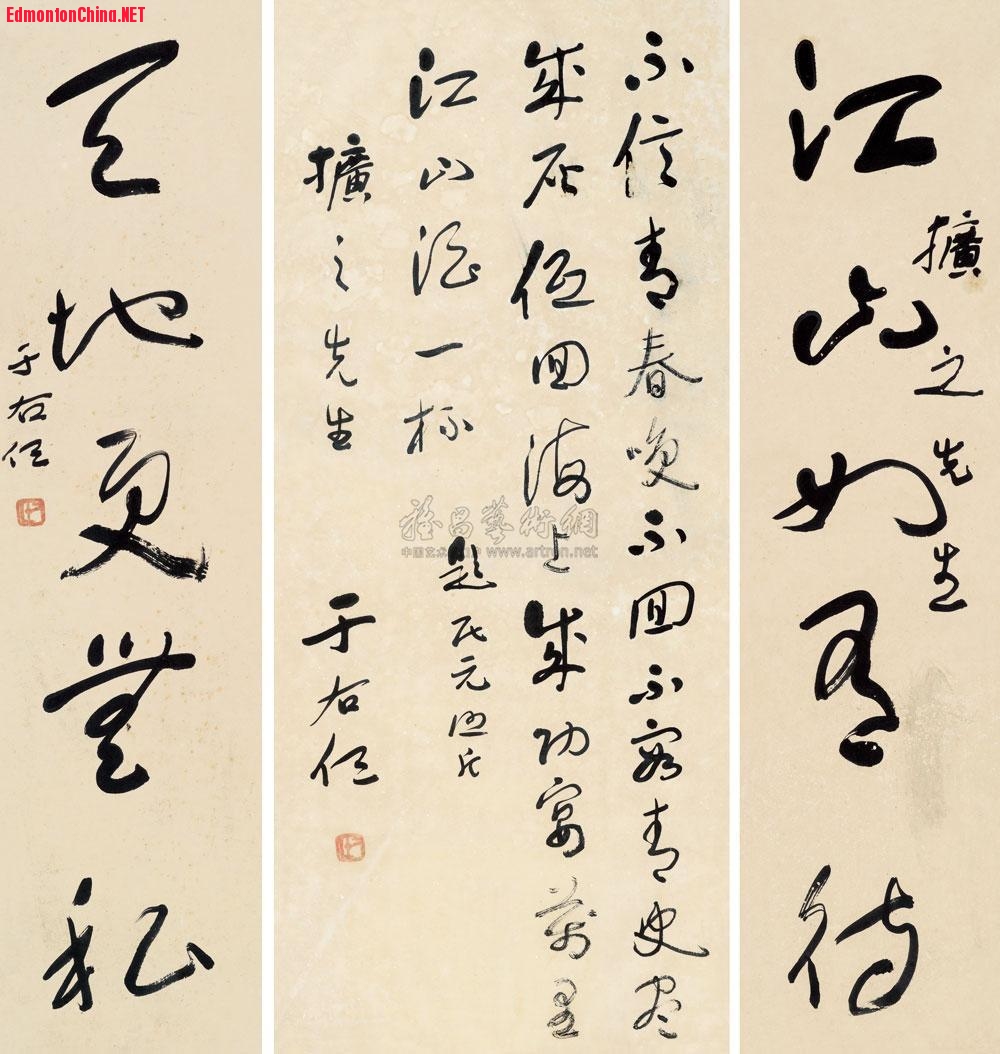 EdmontonChina.NET
江山如有待
擴之先生
不信青春喚不回不容青史盡
成灰低回海上成功宴萬里
江山酒一杯 題民元照片
擴之先生 于右任
天地更無私
于右任
雅昌藝術網
中国艺术
www.artron.net